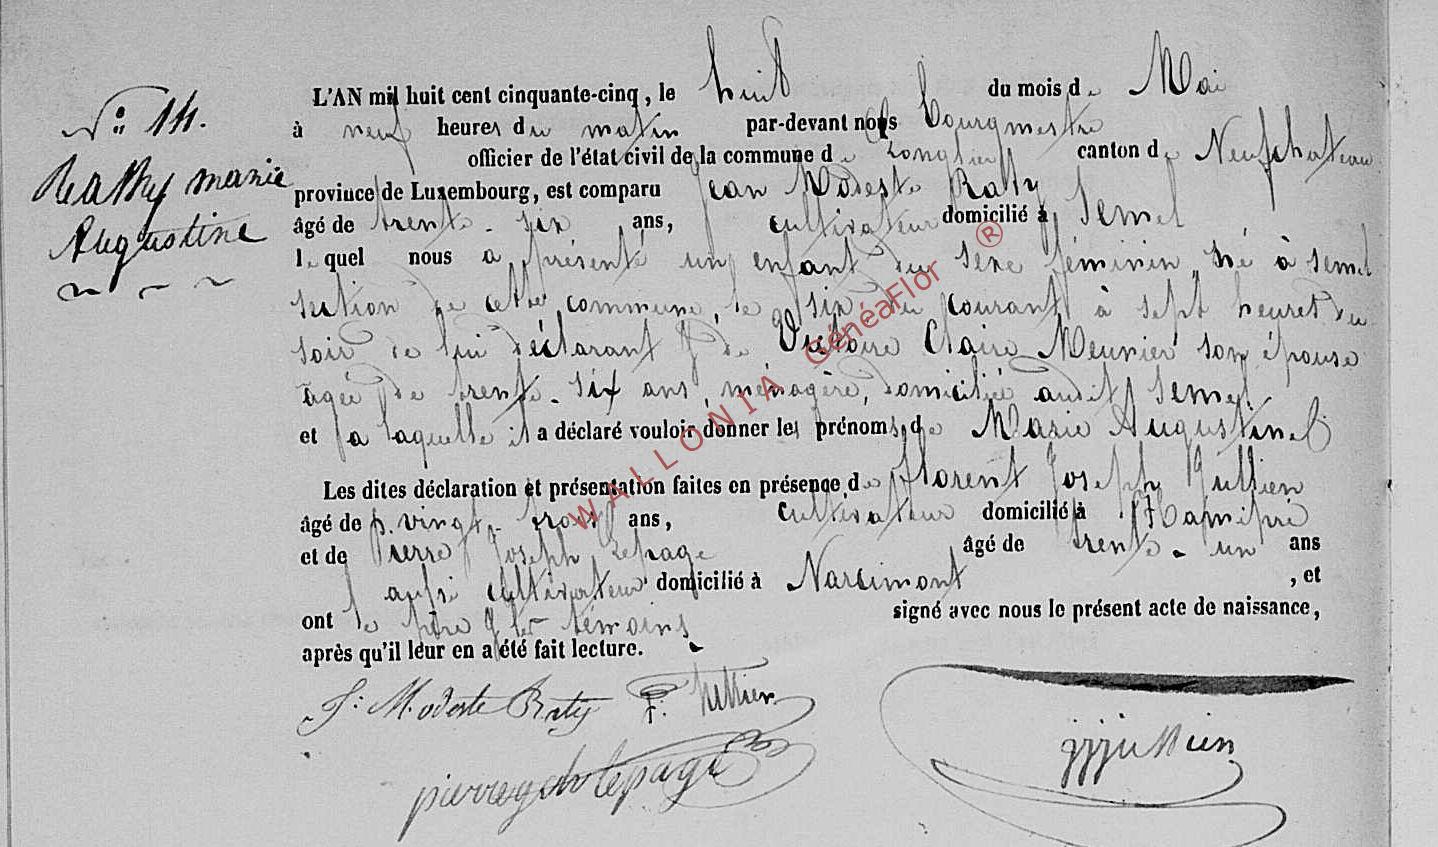 N° 14.
Rathy marie
Augustine
L'AN mil huit cent cinquante-cinq, le huit du mois de Mai
à neuf heures du matin par-devant nous Bourgmestre
officier de l'état civil de la commune de Longlier canton de Neufchateau
province de Luxembourg, est comparu Jean Modeste Raty
âgé de trente-six ans, cultivateur domicilié à Semel
lequel nous a présenté un enfant du sexe féminin, né à Semel
section de cette commune, le six du courant à sept heures du
soir de lui déclarant & de Victoire Claire Meunier son épouse
agée de trente-six ans, ménagère, domiciliée audit Semel
et à laquelle il a déclaré vouloir donner les prénoms de Marie Augustine
Les dites déclaration et présentation faites en présence de florent Joseph Jullien
âgé de vingt-trois ans, cultivateur domicilié à Hamipré
et de Pierre Joseph Lepage âgé de trente-un ans
aussi cultivateur domicilié à Narcimont, et
ont le père & les témoins signé avec nous le présent acte de naissance,
après qu'il leur en a été fait lecture.
J: Modeste Raty F. Jullien
pierre lepage
jjjullien
WALLONIA GénéaFlor ®